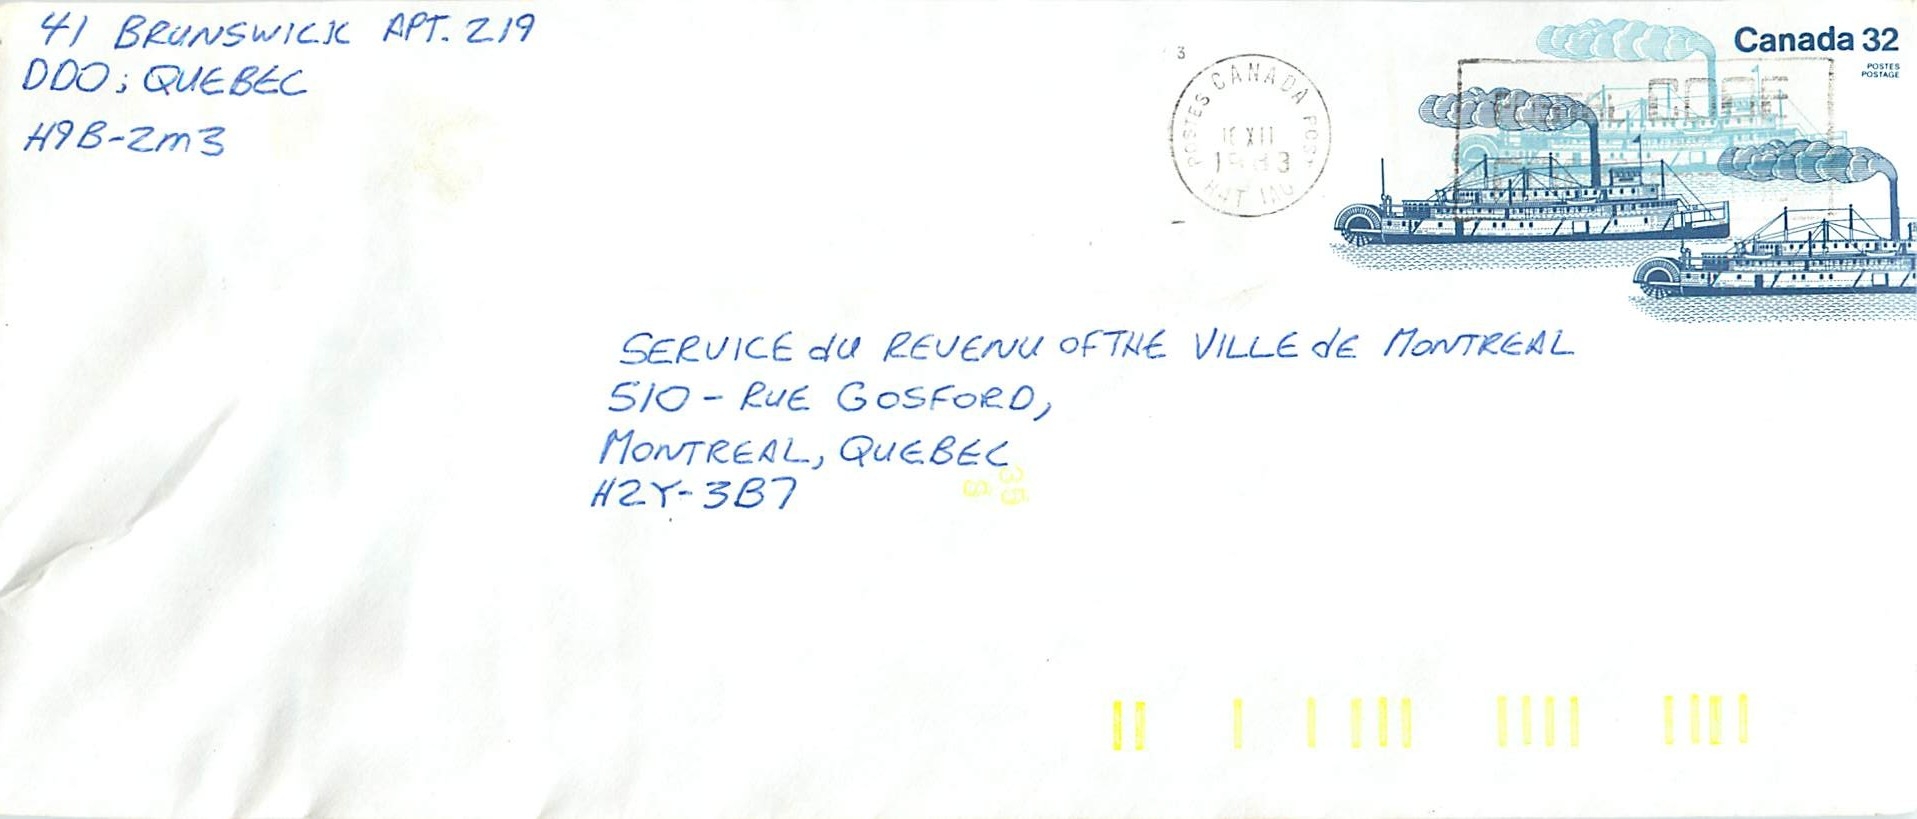 41 BRUNSWICK APT. 219
DDO; QUEBEC
H9B-2M3
Canada 32
POSTES
POSTAGE
3
POSTES CANADA POST
XII
1983
CODE
SERVICE dU REVENU OF THE VILLE de MONTREAL
510 - RUE GOSFORD,
MONTREAL, QUEBEC
H2Y-3B7
35
8